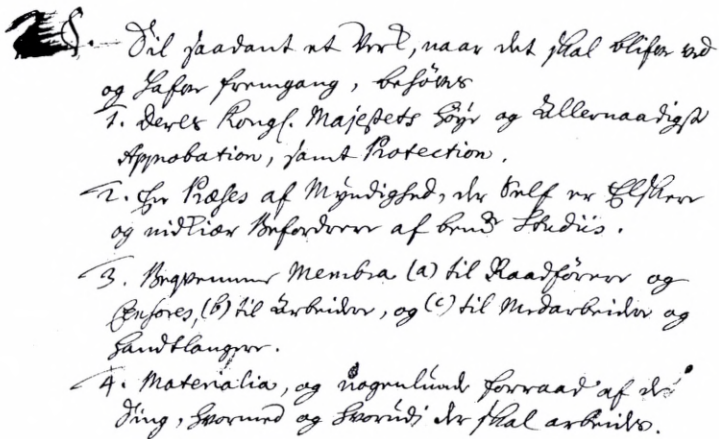 §. – Til saadant et Verk, naar det skal blifve ved
og hafve fremgang, behöves
1. Deres Kongl. Majestets höye og Allernaadigst
Approbation, samt Protection.
2. En Præses af Myndighed, der Self er Elsker
og nidkiær Befordrere af bemte Studiis.
3. Beqvemme Membra (a) til Raadförere og
Censores, (b) til Arbeidere, og (c) til Medarbeidere og
handtlangere.
4. Materialia, og nogenlunde forraad af de
Ting, hvormed og hvorudi der skal arbeides.